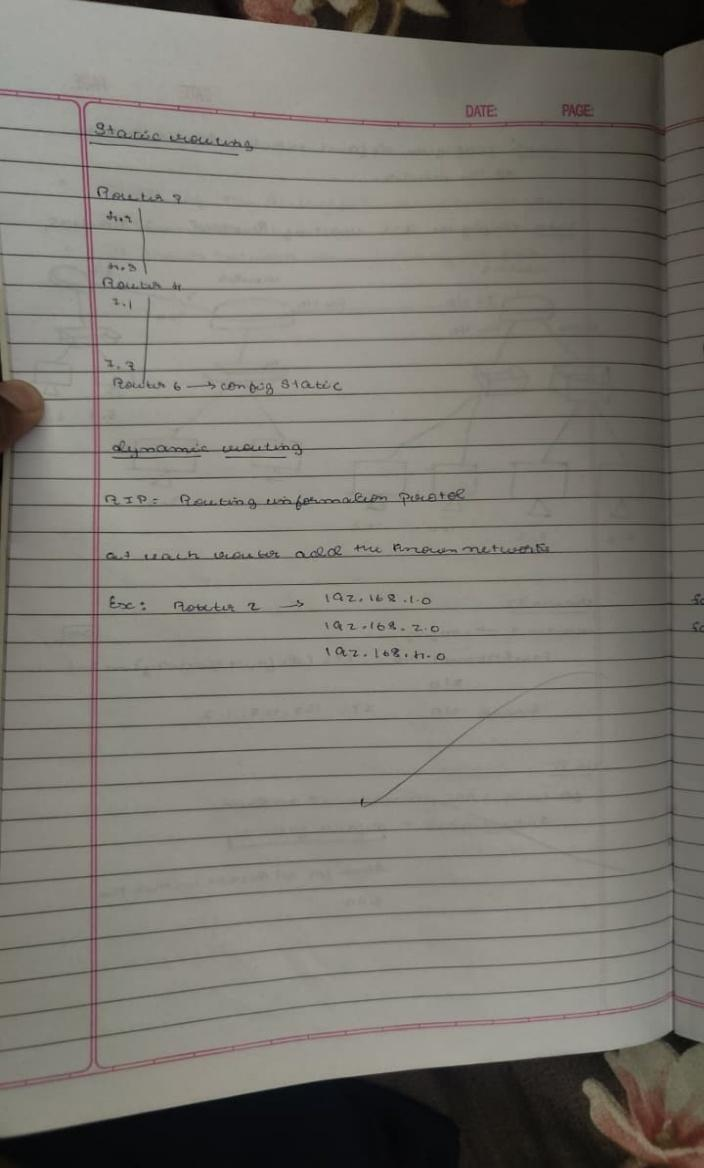 DATE: PAGE:
Static routing
Router 2
4.2
4.3
Router 4
7.1
7.2
Router 6 → config static
dynamic routing
RIP: Routing information protol
at each router add the known networks
Ex: Router 2 → 192.168.1.0
192.168.2.0
192.168.4.0